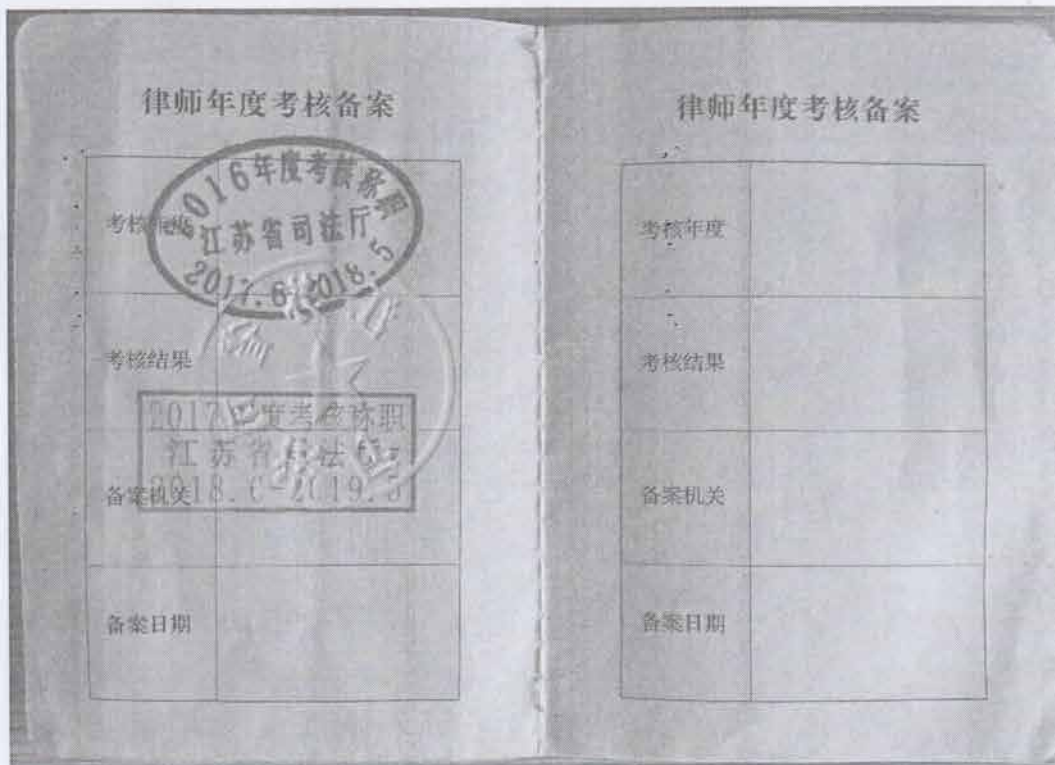 律师年度考核备案
2016年度考核称职
江苏省司法厅
2017.6-2018.5
考核年度
考核结果
2017年度考核称职
江苏省司法厅
2018.6-2019.5
备案机关
备案日期
律师年度考核备案
考核年度
考核结果
备案机关
备案日期